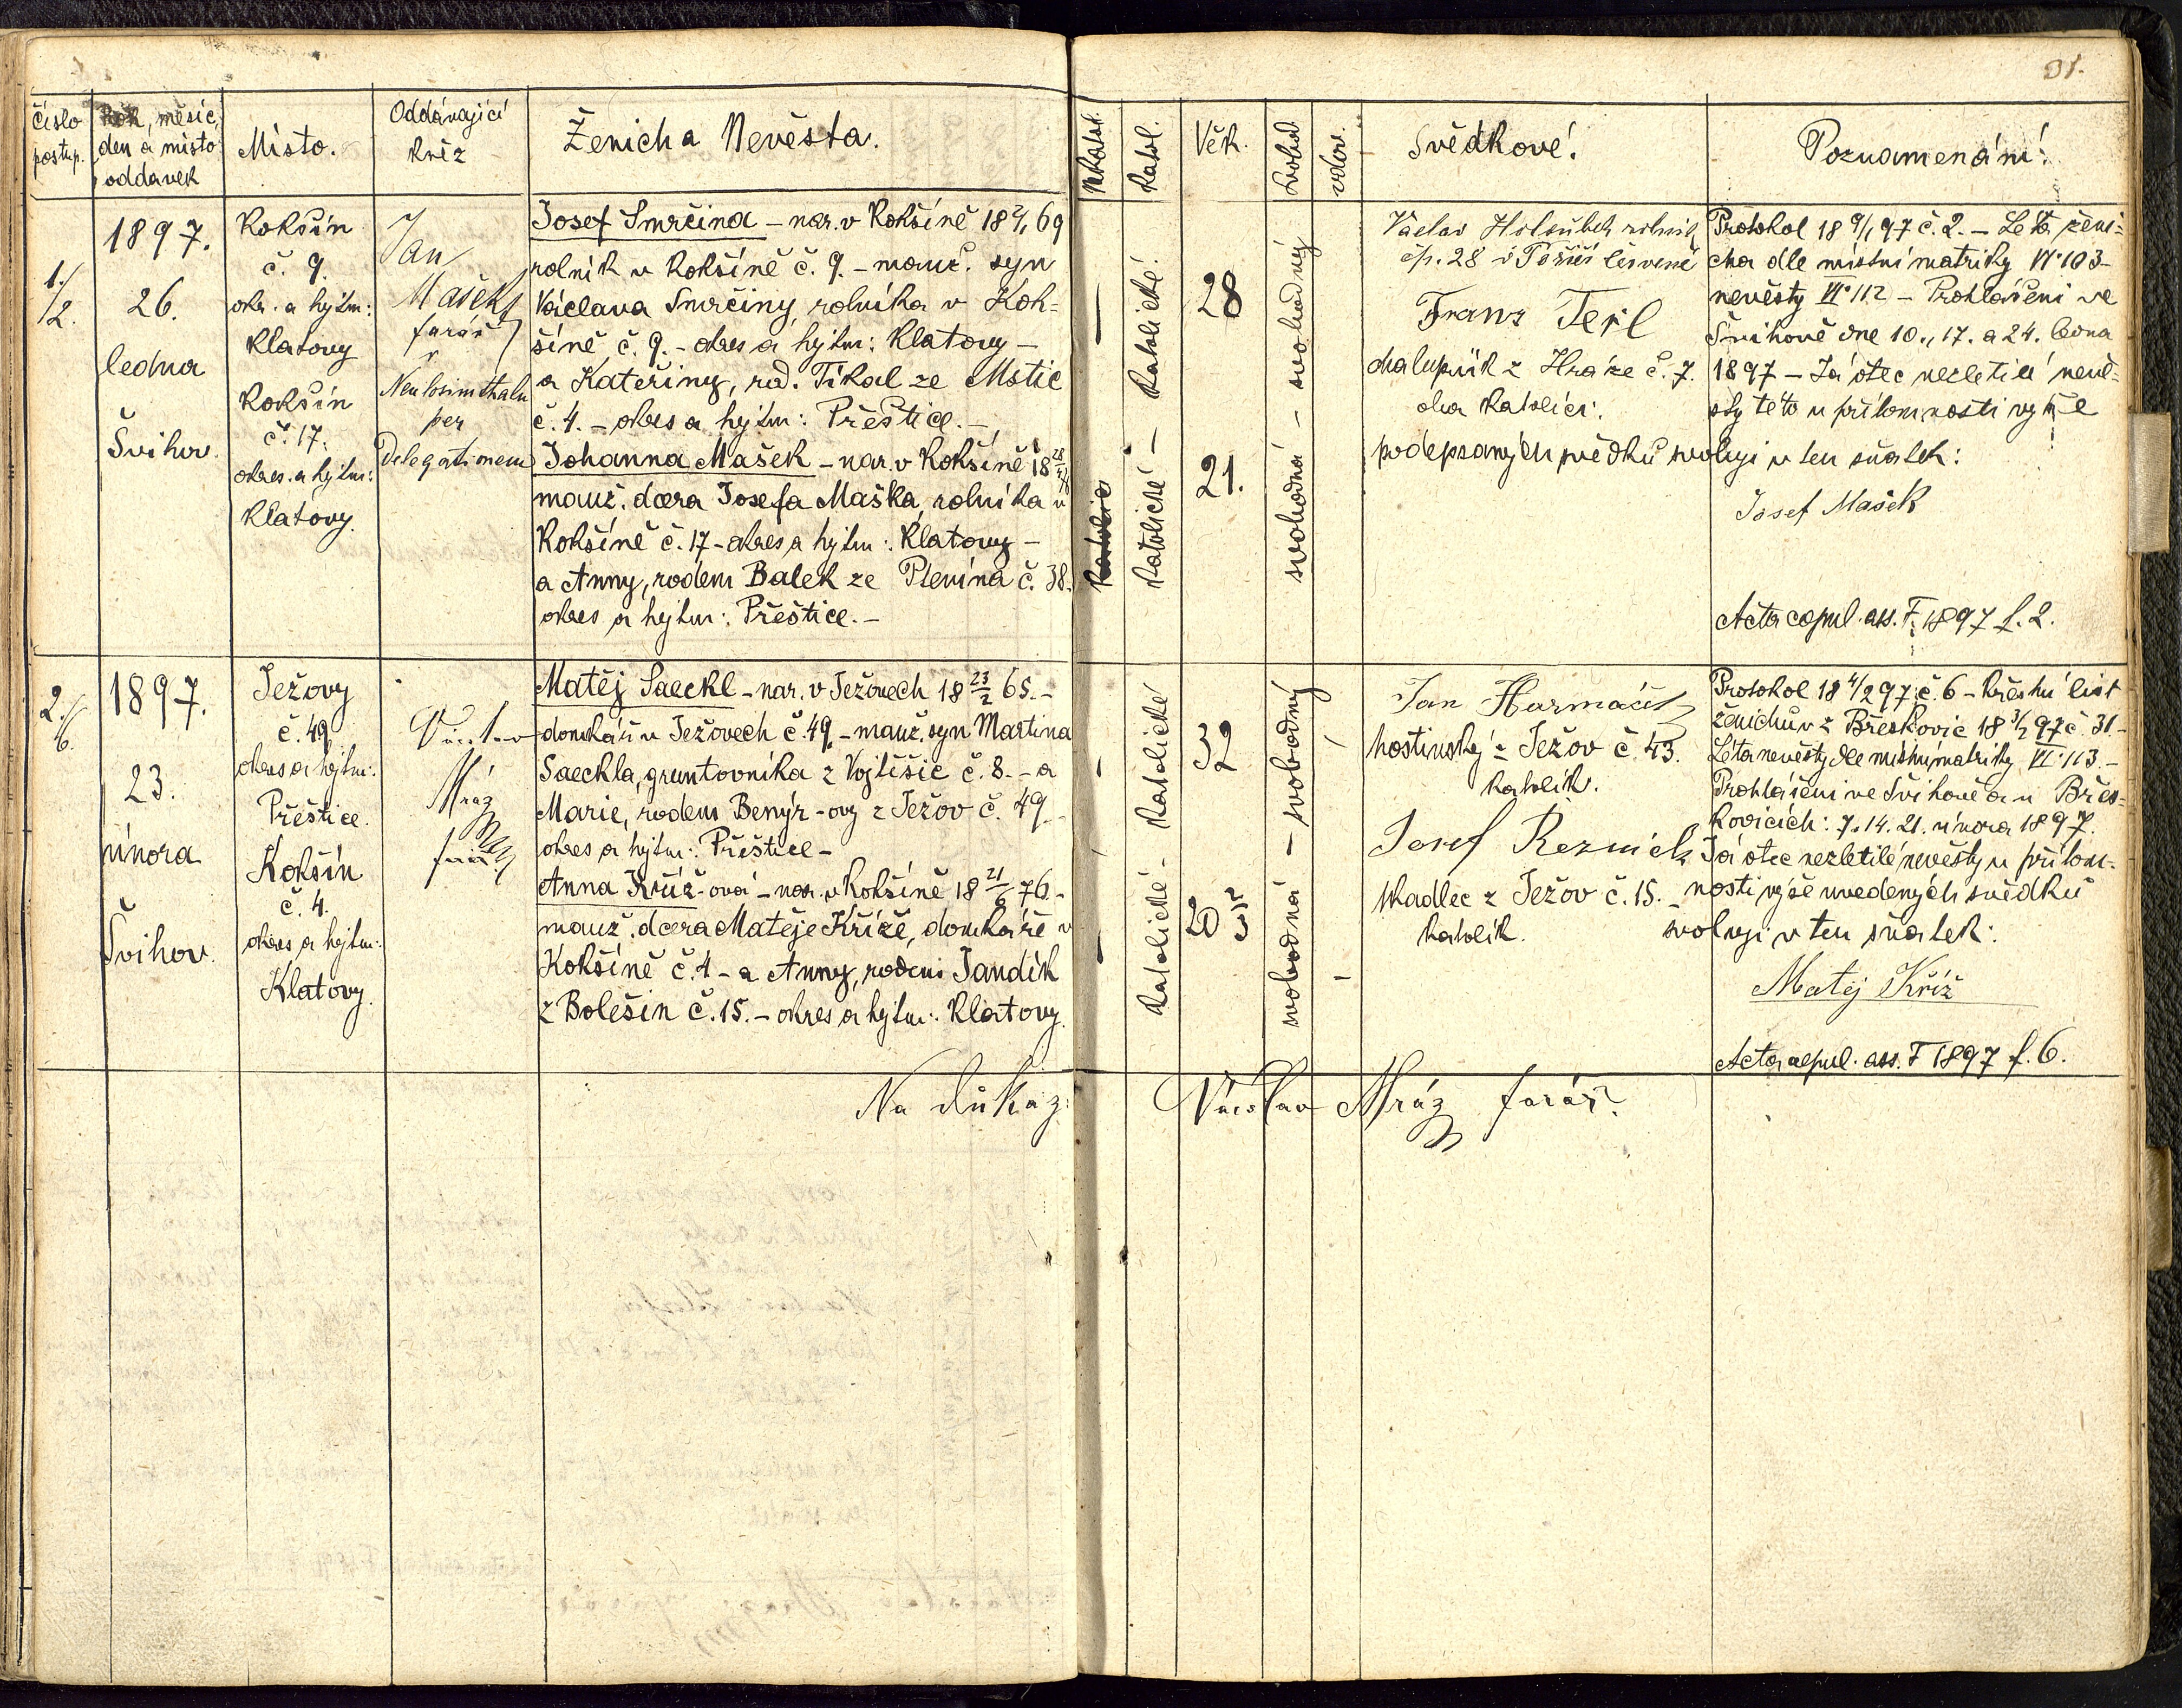 31.
Číslo postup.
Rok, měsíc, den a místo oddavek
Místo.
Oddávající kněz
Ženich a Nevěsta.
Nekatol.
Katol.
Věk.
Svobod.
vdov.
Svědkové!
Poznamenání!
1./2.
1897.
26.
ledna
Švihov.
Kokšín
č. 9.
okr. a hejtm:
Klatovy
Kokšín
č. 17.
okres. a hejtm:
Klatovy.
Jan
Mašek
farář
v
Neulosimthalu
per
Delegationem
Josef Smrčina – nar. v Kokšíně 18 2/1 69
rolník v Kokšíně č. 9. – manž. syn
Václava Smrčiny, rolníka v Kok-
šíně č. 9. – okres a hejtm: Klatovy –
a Kateřiny, rod. Tikal ze Mstic
č. 4. – okres a hejtm: Přeštice. –
Johanna Mašek – nar. v Kokšíně 18
manž. dcera Josefa Maška, rolníka v
Kokšíně č. 17 – okres a hejtm: Klatovy –
a Anny, rodem Balek ze Plevína č. 38.
okres a hejtm: Přeštice. –
Katolické – Katolické!
28
21.
svobodná – svobodný
Václav Holoubek rolník
čp. 28 v Poříčí červené
Franz Tejl
chalupník z Hráze č. 7.
oba katolíci.
Protokol 18 9/1 97 č. 2. – Léta ženi-
cha dle místní matriky VI. 103 –
nevěsty VI. 112 – Prohlášení ve
Švihově dne 10., 17. a 24. ledna
1897 – Já otec nezletilé nevě-
sty této u přítomnosti výše
podepsaných svědků svoluji v ten sňatek:
Josef Mašek
Acta copul. ass. F. 1897 f. 2.
2./6.
1897.
23.
února
Švihov.
Ježovy
č. 49
okres a hejtm:
Přeštice.
Kokšín
č. 4.
okres a hejtm:
Klatovy.
Václav
Mráz
farář
Matěj Saeckl – nar. v Ježovech 18 23/2 65. –
domkář v Ježovech č. 49. – manž. syn Martina
Saeckla, gruntovníka z Vojtěšic č. 8. – a
Marie, rodem Benýr-ovy z Ježov č. 49
okres a hejtm: Přeštice –
Anna Kříž-ová – nar. v Kokšíně 18 21/6 76. –
manž. dcera Matěje Kříže, domkáře v
Kokšíně č. 4 – a Anny, rodem Jandík
z Bolešin č. 15. – okres a hejtm: Klatovy.
Katolické – Katolické
32
20
svobodná – svobodný
Jan Harmáčik
hostinský z Ježov č. 43.
katolík.
Josef Rezniček
tkadlec z Ježov č. 15. –
katolík.
Protokol 18 4/2 97 č. 6 – křestní list
ženichův z Břeskovic 18 3/2 97 č. 31. –
Léta nevěsty dle místní matriky VI. 113. –
Prohlášení ve Švihově a v Břes-
kovicích: 7. 14. 21. února 1897.
Já otec nezletilé nevěsty u přítom-
nosti výše uvedených svědků
svoluji v ten sňatek:
Matěj Kříž
Acta copul. ass. F 1897 f. 6.
Na důkaz: Václav Mráz farář.